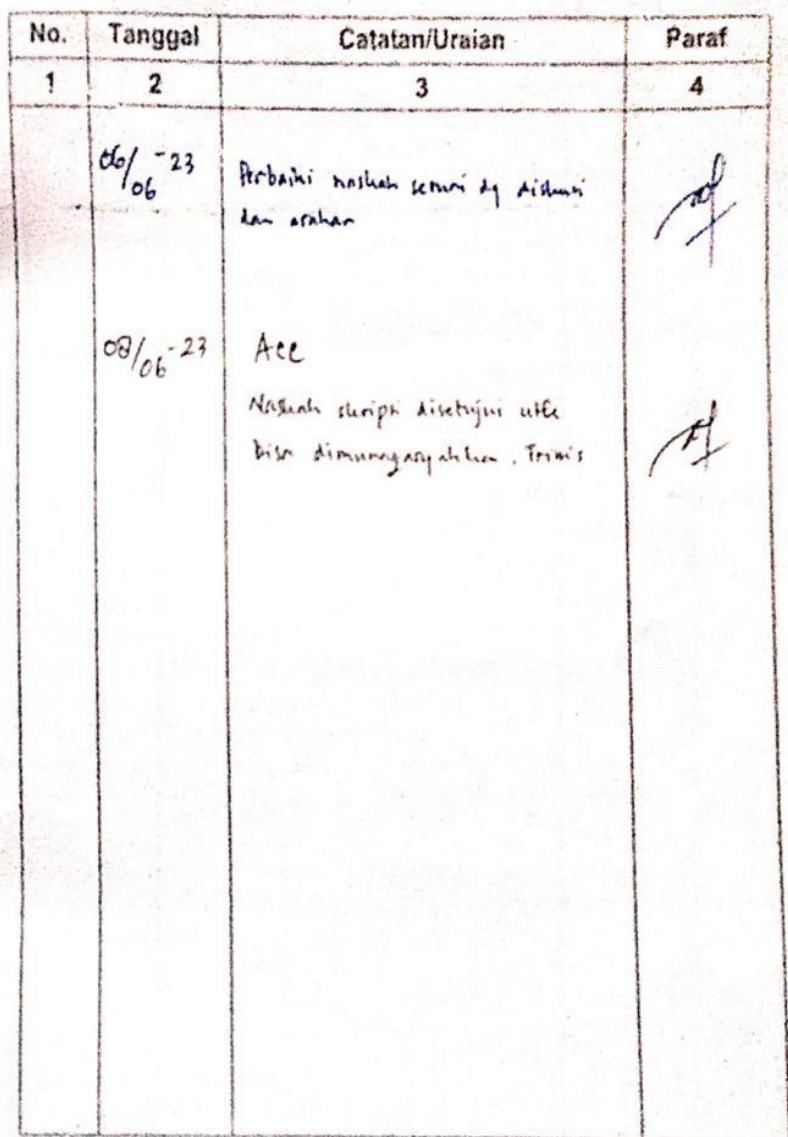 No. Tanggal Catatan/Uraian Paraf
1 2 3 4
06/06-23 Perbaiki naskah sesuai dg diskusi
dan arahan
08/06-23 Acc
Naskah skripsi disetujui utk
bisa dimunaqasyahkan. Trims